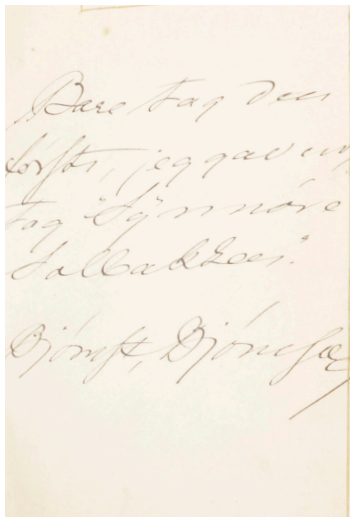 Bare tag den
første, jeg gav ud,
tag "Synnöve
Solbakken".
Bjørnst. Bjørnson